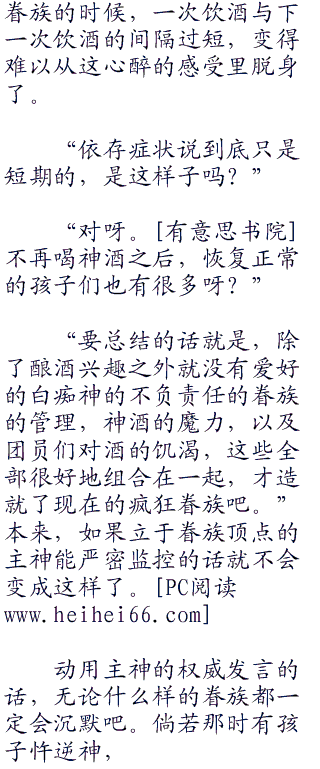 眷族的时候，一次饮酒与下
一次饮酒的间隔过短，变得
难以从这心醉的感受里脱身
了。
“依存症状说到底只是
短期的，是这样子吗？”
“对呀。[有意思书院]
不再喝神酒之后，恢复正常
的孩子们也有很多呀？”
“要总结的话就是，除
了酿酒兴趣之外就没有爱好
的白痴神的不负责任的眷族
的管理，神酒的魔力，以及
团员们对酒的饥渴，这些全
部很好地组合在一起，才造
就了现在的疯狂眷族吧。”
本来，如果立于眷族顶点的
主神能严密监控的话就不会
变成这样了。[PC阅读
www.heihei66.com]
动用主神的权威发言的
话，无论什么样的眷族都一
定会沉默吧。倘若那时有孩
子忤逆神，